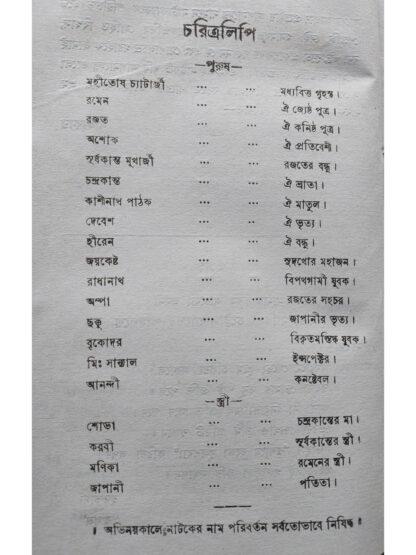 চরিত্রলিপি
—পুরুষ—
মহীতোষ চ্যাটার্জী ... ... মধ্যবিত্ত গৃহস্থ।
রমেন ... ... ঐ জ্যেষ্ঠ পুত্র।
রজত ... ... ঐ কনিষ্ঠ পুত্র।
অশোক ... ... ঐ প্রতিবেশী।
সূর্যকান্ত মুখার্জী ... ... রজতের বন্ধু।
চন্দ্রকান্ত ... ... ঐ ভ্রাতা।
কাশীনাথ পাঠক ... ... ঐ মাতুল।
দেবেশ ... ... ঐ ভৃত্য।
হীরেন ... ... ঐ বন্ধু।
জয়কেষ্ট ... ... সুদখোর মহাজন।
রাধানাথ ... ... বিপথগামী যুবক।
অম্পা ... ... রজতের সহচর।
ছকু ... ... জাপানীর ভৃত্য।
বৃকোদর ... ... বিকৃতমস্তিষ্ক যুবক।
মিঃ সান্যাল ... ... ইন্সপেক্টর।
আনন্দী ... ... কনষ্টেবল।
—স্ত্রী—
শোভা ... ... চন্দ্রকান্তের মা।
করবী ... ... সূর্যকান্তের স্ত্রী।
মণিকা ... ... রমেনের স্ত্রী।
জাপানী ... ... পতিতা।
॥ অভিনয়কালে নাটকের নাম পরিবর্তন সর্বতোভাবে নিষিদ্ধ ॥